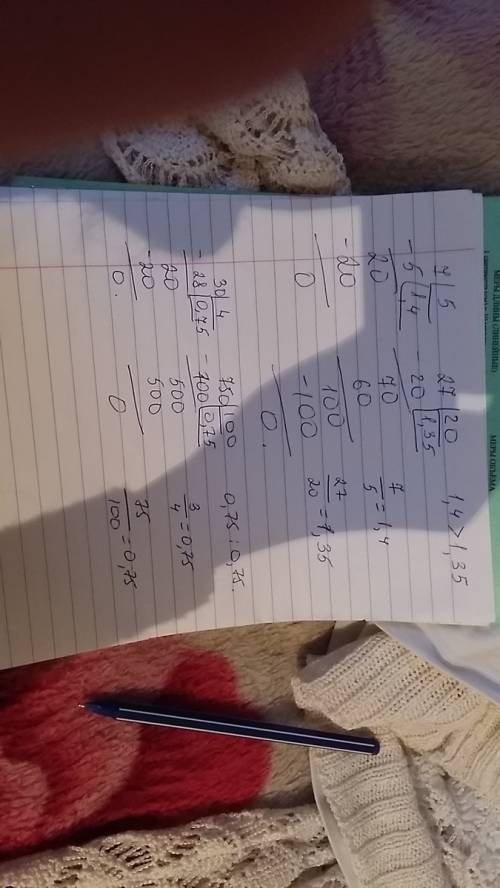 7 | 5   27 | 20   1,4 > 1,35
- 5 | 1,4   - 20 | 1,35
20   70   7/5 = 1,4
- 20   60
0   100   27/20 = 1,35
- 100
0.
30 | 4   750 | 100   0,75 : 0,75.
- 28 | 0,75   - 700 | 0,75
20   500   3/4 = 0,75
- 20   500
0.   0   75/100 = 0,75
МЕРЫ ОБЪЕМА